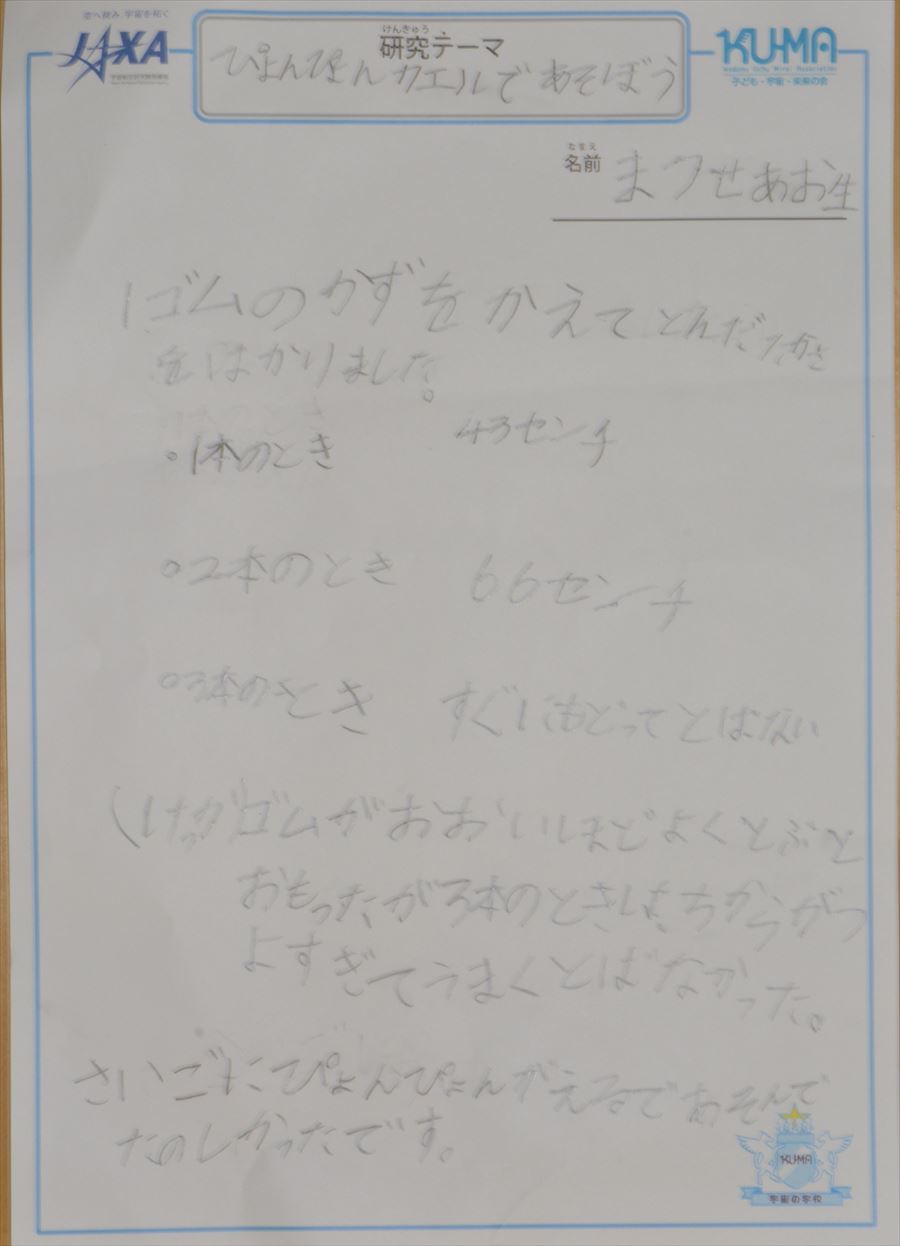 空へ挑み、宇宙を拓く
JAXA
けんきゅう
研究テーマ
ぴょんぴょんカエルであそぼう
KU-MA
子ども・宇宙・未来の会
なまえ
名前 まつせあお生
1ゴムのかずをかえてとんだたかさ
をはかりました。
・1本のとき 43センチ
・2本のとき 66センチ
・3本のとき すぐにもどってとばない
ゴムがおおいほどよくとぶと
おもったが3本のときはちからがつ
よすぎてうまくとばなかった。
さいごにぴょんぴょんがえるであそんで
たのしかったです。
KU-MA
宇宙の学校